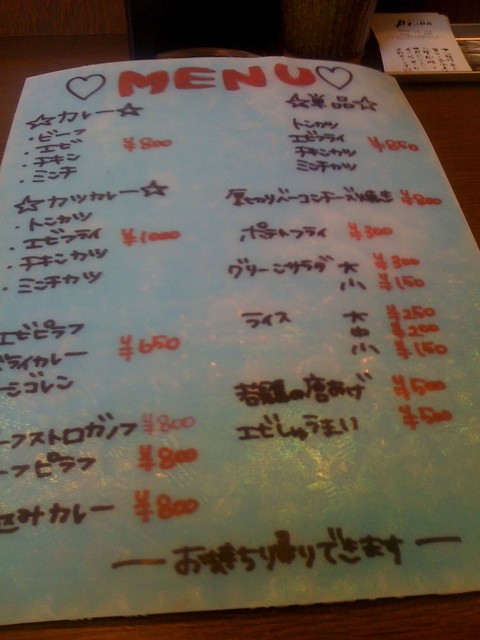 ♡ MENU ♡
☆カレー☆
・ビーフ
・エビ ¥800
・チキン
・ミンチ
☆カツカレー☆
・トンカツ
・エビフライ ¥1000
・チキンカツ
・ミンチカツ
エビピラフ
ドライカレー ¥650
ーシゴレン
ーフストロガノフ ¥800
ーフピラフ ¥800
込みカレー ¥800
☆単品☆
トンカツ
エビフライ ¥850
チキンカツ
ミンチカツ
厚切りベーコンチーズ焼き ¥800
ポテトフライ ¥300
グリーンサラダ 大 ¥300
小 ¥150
ライス 大 ¥250
中 ¥200
小 ¥150
若鶏の唐あげ ¥500
エビしゅうまい ¥500
― お持ち帰りできます ―